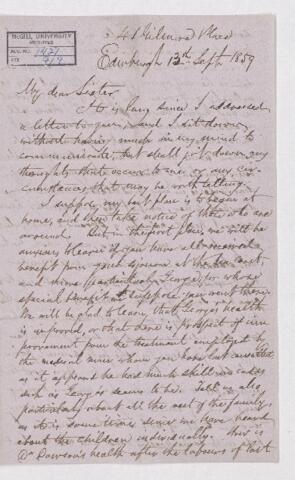 McGILL UNIVERSITY
ARCHIVES
ACC. NO. 1427
REF.
41 Gilmore Place
Edinburgh 13th Sept. 1859
My dear Sister,
It is long since I addressed
a letter to you, and I sit down
without having much in my mind to
communicate, but shall jot down any
thoughts that occur to me, or any cir-
cumstances that may be worth telling.
I suppose my best plan is to begin at
home, and then take notice of those who are
around. But in the first place, we will be
anxious to learn that you have all received
benefit from your sojourn at the sea coast,
and more particularly George, for whose
special benefit I suppose you went there.
We will be glad to learn, that George's health
is improved, or that there is prospect of im-
provement from the treatment employed by
the medical man whom you have consulted,
as it appears he had much skill in cases
such as George's seems to be. Tell us also
particularly about all the rest of the family,
as it is some time since we have heard
about the children individually. How is
Dr Dawson's health after the labours of last